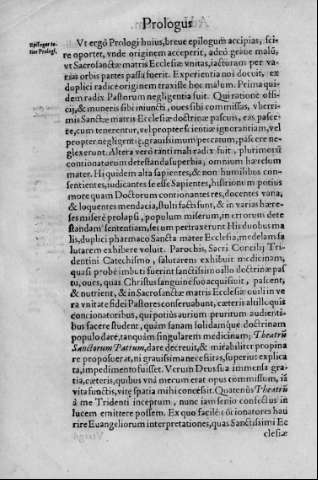 Prologus
Epilogus to-
tius Prologi.
Vt ergò Prologi huius, breue epilogum accipias, sci-
re oportet, vnde originem acceperit, adeò graue malū,
vt Sacrosanctæ matris Ecclesiæ vnitas, iacturam per va-
rias orbis partes passa fuerit. Experientia nos docuit, ex
duplici radice originem traxisse hoc malum. Prima qui-
dem radix Pastorum negligentia fuit. Qui ratione offi-
cij, & muneris sibi iniuncti, oues sibi commissas, vberri-
mis Sanctæ matris Ecclesiæ doctrinæ pascuis, eas pasce-
re, cum tenerentur, vel propter scientiæ ignorantiam, vel
propter negligentiæ, grauissimum peccatum, pascere ne-
glexerunt. Altera verò tanti mali radix fuit, plurimorū
contionatorum detestanda superbia, omnium hæresum
mater. Hi quidem alta sapientes, & non humilibus con-
sentientes, iudicantes se esse Sapientes, histrionum potius
more quam Doctorum contionantes res, docentes vana,
& loquentes mendacia, stulti facti sunt, & in varias hære-
ses miserè prolapsi, populum miserum, in errorum dete
standam sententiam, secum pertraxerunt His duobus ma
lis, duplici pharmaco Sancta mater Ecclesia, medelam sa
lutarem exhibere voluit. Parochis, Sacri Concilij Tri-
dentini Catechismo, salutarem exhibuit medicinam,
quasi probè imbuti fuerint sanctissimo illo doctrinæ pas
tu, oues, quas Christus sanguine suo acquisiuit, pascent,
& nutrient, & in Sacrosanctæ matris Ecclesiæ ouili in ve
ra vnitate fidei Pastores conseruabunt, cæteris aliis, quis
concionatoribus, qui potiùs aurium pruritum audienti-
bus facere student, quàm sanam solidamque doctrinam
populo dare, tanquàm singularem medicinam; Theatrū
Sanctorum Patrum, dare decreuit, & mirabiliter propina
re proposuerat, ni grauissima necessitas, superius explica
ta, impedimento fuisset. Verum Deus sua immensa gra-
tia, cæteris, quibus vnà mecum erat opus commissum, iā
vita functis, vitę spatia mihi concessit. Quatenùs Theatrū
à me Tridenti inceptum, nunc iam senio confectus in
lucem emittere possem. Ex quo facilè cōtionatores hau
rire Euangeliorum interpretationes, quas Sanctissimi Ec
clesiæ